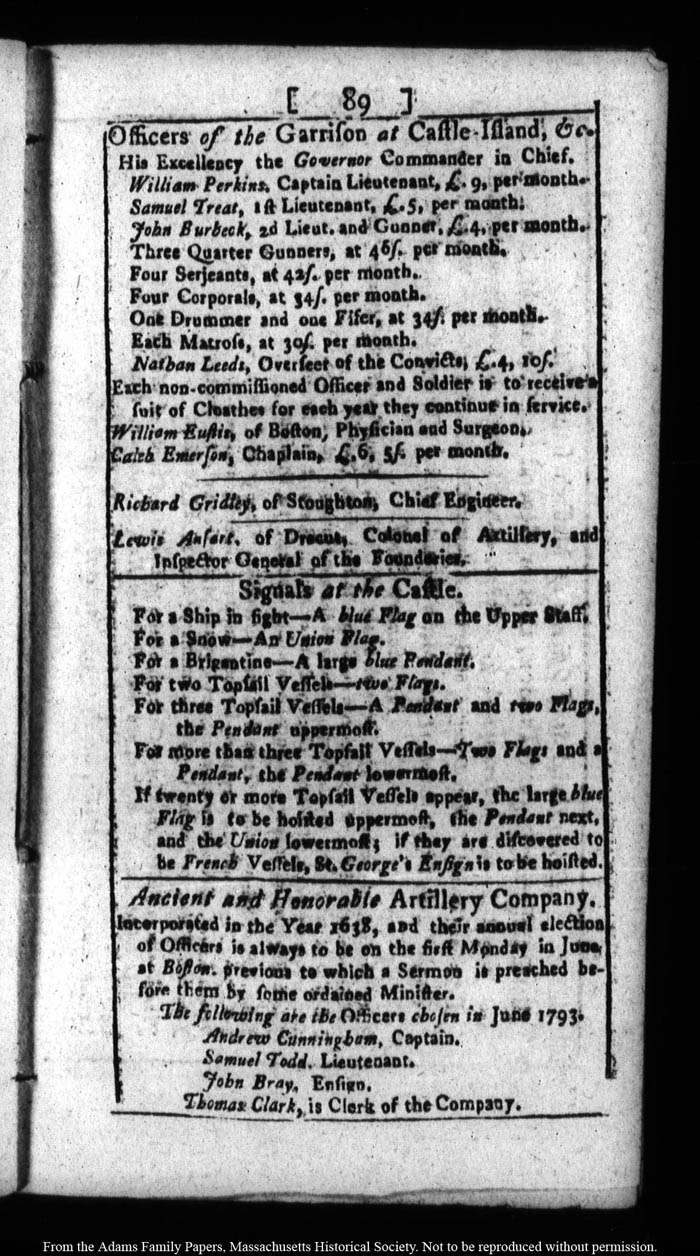 [ 89 ]
Officers of the Garriſon at Caſtle-Iſland, &c.
His Excellency the Governor Commander in Chief.
William Perkins, Captain Lieutenant, £. 9, per month.
Samuel Treat, 1ſt Lieutenant, £.5, per month.
John Burbeck, 2d Lieut. and Gunner, £.4, per month.
Three Quarter Gunners, at 46ſ. per month.
Four Serjeants, at 42ſ. per month.
Four Corporals, at 34ſ. per month.
One Drummer and one Fifer, at 34ſ. per month.
Each Matroſs, at 30ſ. per month.
Nathan Leeds, Overſeer of the Convicts, £.4, 10ſ.
Each non-commiſſioned Officer and Soldier is to receive a
ſuit of Cloathes for each year they continue in ſervice.
William Euſtis, of Boſton, Phyſician and Surgeon.
Caleb Emerſon, Chaplain, £.6, 5ſ. per month.
Richard Gridley, of Stoughton, Chief Engineer.
Lewis Anſart, of Dracut, Colonel of Artillery, and
Inſpector General of the Founderies.
Signals at the Caſtle.
For a Ship in ſight—A blue Flag on the Upper Staff.
For a Snow—An Union Flag.
For a Brigantine—A large blue Pendant.
For two Topſail Veſſels—two Flags.
For three Topſail Veſſels—A Pendant and two Flags,
the Pendant uppermoſt.
For more than three Topſail Veſſels—Two Flags and a
Pendant, the Pendant lowermoſt.
If twenty or more Topſail Veſſels appear, the large blue
Flag is to be hoiſted uppermoſt, the Pendant next,
and the Union lowermoſt; if they are diſcovered to
be French Veſſels, St. George's Enſign is to be hoiſted.
Ancient and Honorable Artillery Company.
Incorporated in the Year 1638, and their annual election
of Officers is always to be on the firſt Monday in June,
at Boſton. previous to which a Sermon is preached be-
fore them by ſome ordained Miniſter.
The following are the Officers choſen in June 1793.
Andrew Cunningham, Captain.
Samuel Todd, Lieutenant.
John Bray, Enſign.
Thomas Clark, is Clerk of the Company.
From the Adams Family Papers, Massachusetts Historical Society. Not to be reproduced without permission.